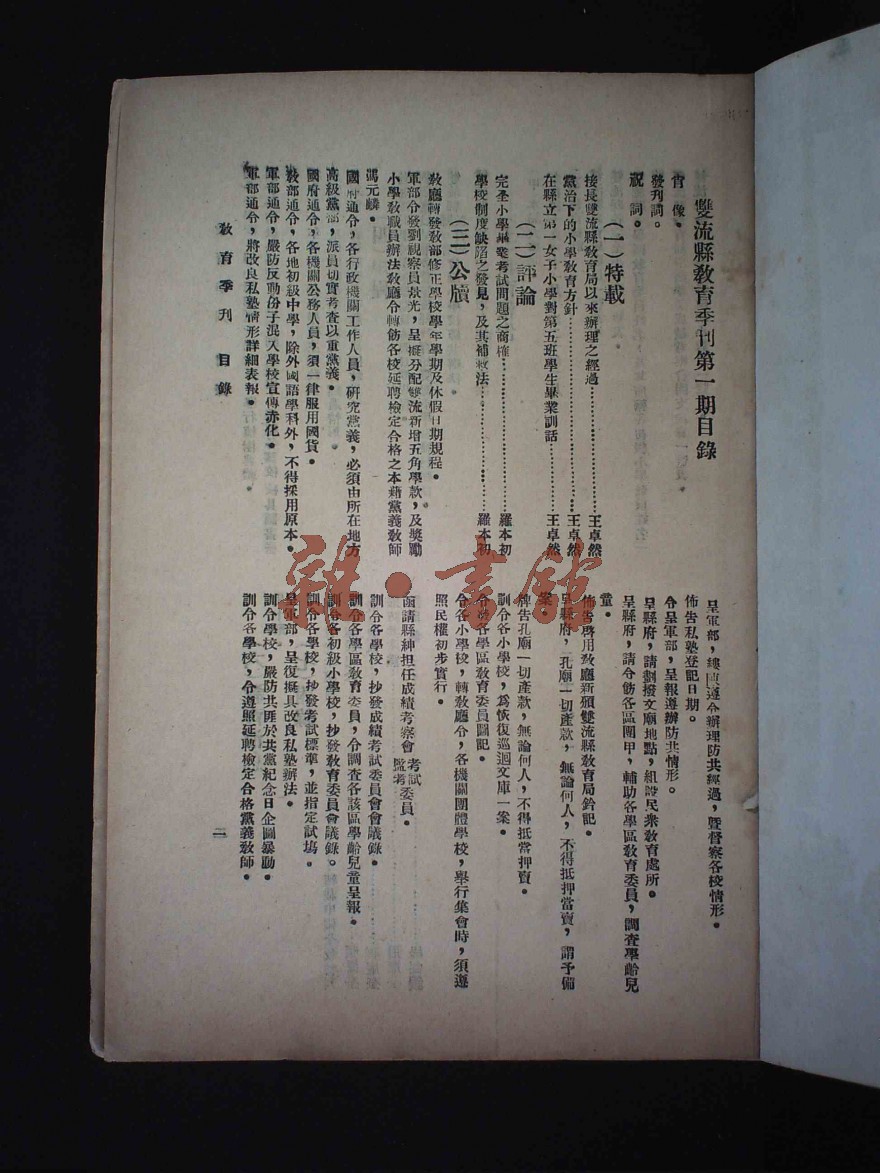 雙流縣教育季刊第一期目錄
肖像。
發刊詞。
祝詞。
(一)特載
接長雙流縣教育局以來辦理之經過………………王卓然
黨治下的小學教育方針………………王卓然
在縣立第一女子小學對第五班學生畢業訓話………………王卓然
(二)評論
完全小學畢業考試問題之商榷………………羅本初
學校制度缺陷之發見,及其補救法………………羅本初
(三)公牘
教廳轉發教部修正學校學年學期及休假日期規程。
軍部令發劉視察員景光,呈擬分配雙流新增五角學款,及獎勵
小學教職員辦法教廳令轉飭各校延聘檢定合格之本籍黨義教師
馮元麟。
國府通令,各行政機關工作人員,研究黨義,必須由所在地方
高級黨部,派員切實考查以重黨義。
國府通令,各機關公務人員,須一律服用國貨。
教部通令,各地初級中學,除外國語學科外,不得採用原本。
軍部通令,嚴防反動份子混入學校宣傳赤化。
軍部通令,將改良私塾情形詳細表報。
教育季刊 目錄
呈軍部,遵令辦理防共經過,暨督察各校情形。
佈告私塾登記日期。
令呈軍部,呈報遵辦防共情形。
呈縣府,請劃撥文廟地點,組設民衆教育處所。
呈縣府,請令飭各區團甲,輔助各學區教育委員,調查學齡兒
童。
佈告啓用教廳新頒雙流縣教育局鈐記。
呈縣府,孔廟一切產款,無論何人,不得抵押當賣,謂予備
案。
牌告孔廟一切產款,無論何人,不得抵當押賣。
訓令各小學校,爲恢復巡迴文庫一案。
令發各學區教育委員圖記。
令各小學校,轉教廳令,各機關團體學校,舉行集會時,須遵
照民權初步實行。
函請縣紳担任成績考察會考試監考委員。
訓令各學校,抄發成績考試委員會會議錄。
訓令各學區教育委員,令調查各該區學齡兒童呈報。
訓令各初級小學校,抄發教育委員會議錄。
訓令各學校,抄發考試標準,並指定試塲。
呈軍部,呈復擬具改良私塾辦法。
訓令學校,嚴防共匪於共黨紀念日企圖暴動。
訓令各學校,令遵照延聘檢定合格黨義教師。
二
雜·書館